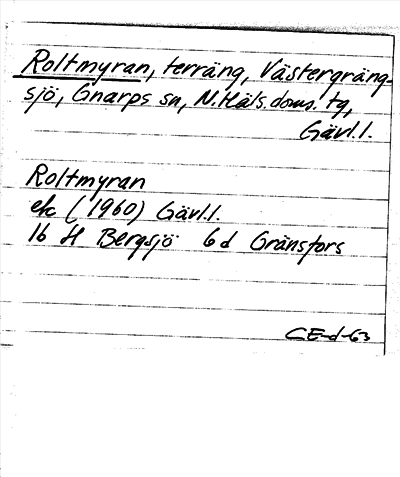 Roltmyran, terräng, Västergräng-
sjö, Gnarps sn, N. Häls. doms. tg,
Gävl.l.
Roltmyran
ek (1960) Gävl.l.
16 H Bergsjö 6d Gränsfors
CE-d-63